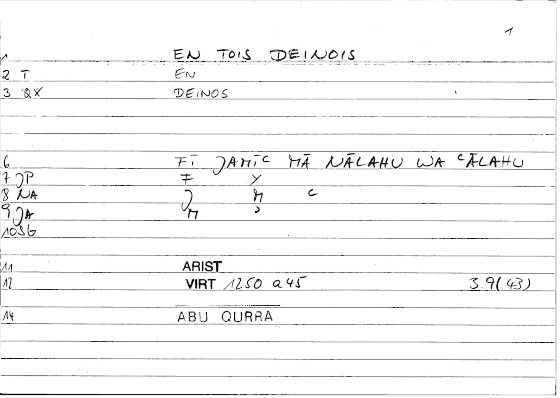 1
1 EN TOIS DEINOIS
2 T EN
3 QX DEINOS
6 FĪ JAMĪᶜ MĀ NĀLAHU WA ᶜĀLAHU
7 JP F Y
8 NA J M C
9 JA M ɔ
10 SG
11 ARIST
12 VIRT 1250 a45 3.9(43)
14 ABU QURRA